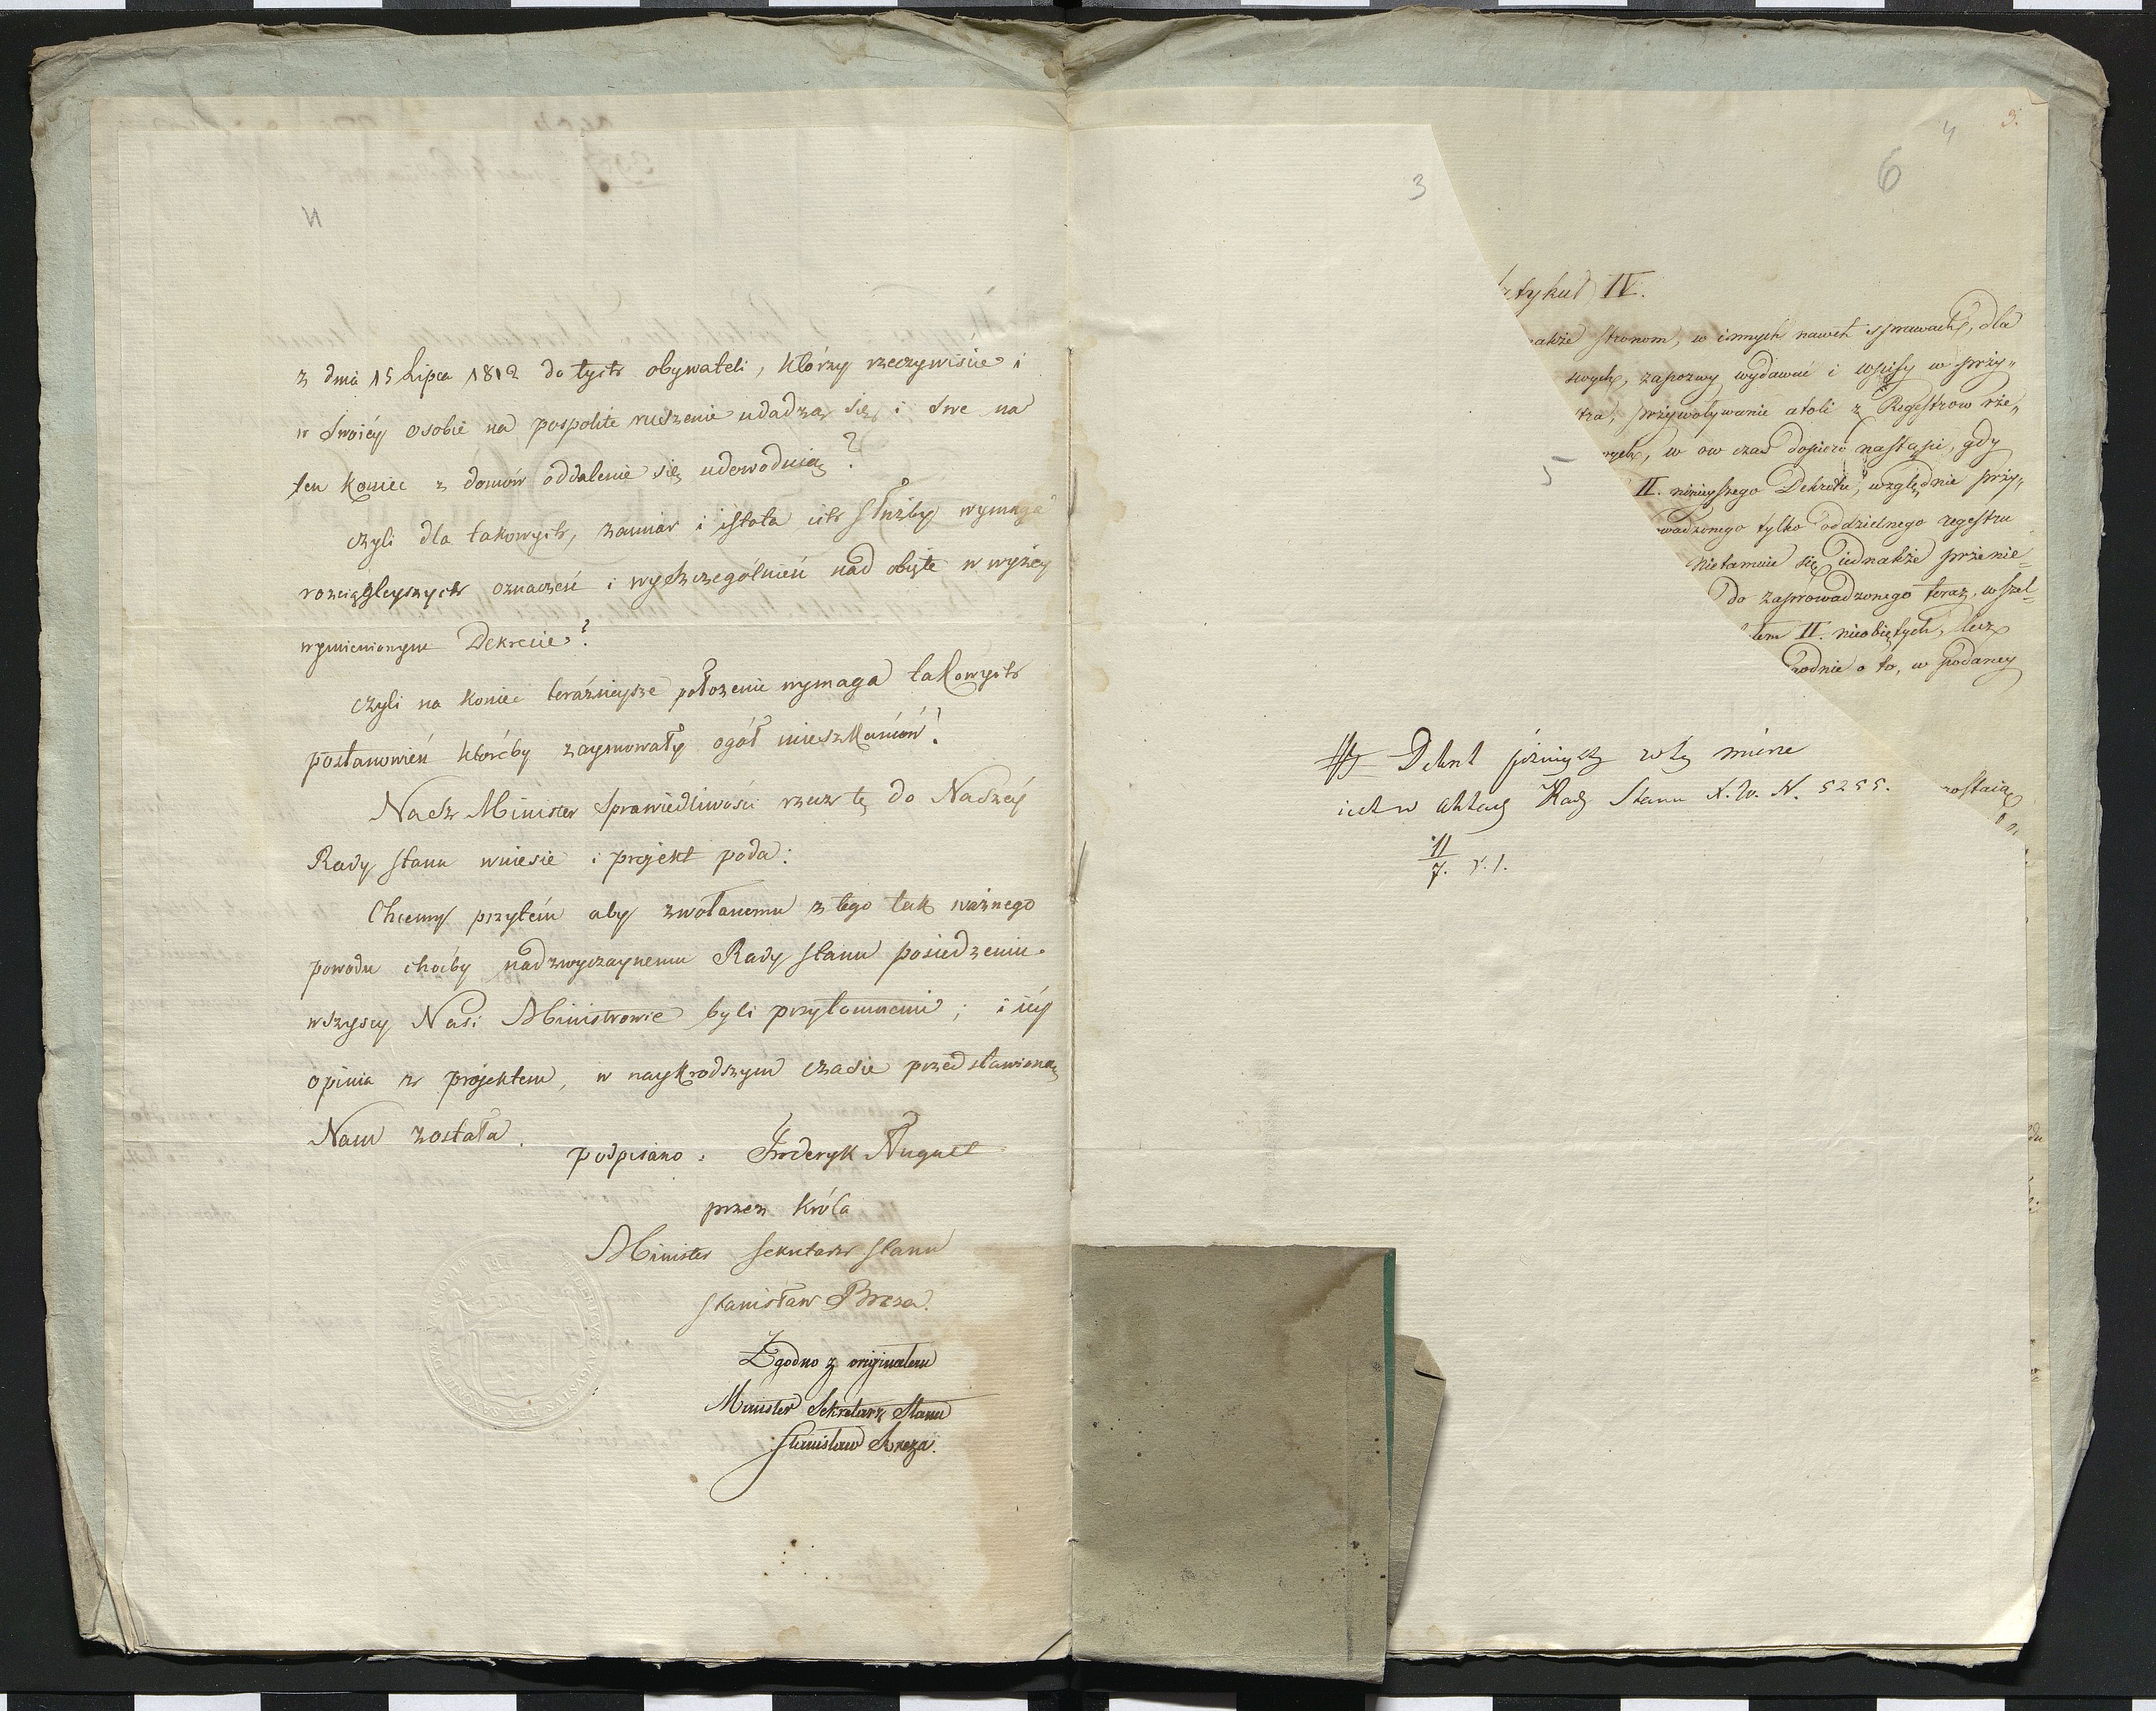 z dnia 15 Lipca 1812 do tych obywateli, którzy rzeczywiście i
w swoiéy osobie na pospolite ruszenie udadzą się i swe na
ten koniec z domów oddalenie się udowodnią?
czyli dla takowych, zamiar i istota ich służby wymaga
rozciągleyszych oznaczeń i wyszczególnień nad obięte w wyżéy
wymienionym Dekrecie?
czyli na koniec teraźnieysze położenie wymaga takowych
postanowień któréby zaymowały ogół mieszkańców?
Nasz Minister Sprawiedliwości rzecz tę do Naszéy
Rady stanu wniesie i projekt poda:
Chcemy przytém aby zwołanemu z tego tak ważnego
powodu choćby nadzwyczaynemu Rady stanu posiedzeniu
wszyscy Nasi Ministrowie byli przytomnemi; i iéy
opinia z projektem, w naykrodszym czasie przedstawioną
Nam została.
podpisano: Fryderyk August
przez Króla
Minister Sekretarz stanu
Stanisław Breza.
Zgodno z oryginałem
Minister Sekretarz Stanu
Stanisław Breza.
3
6
4
3.
5
rtykuł IV.
akże stronom, w innych nawet sprawach, dla
swych, zapozwy wydawać i wpisy w przy„
tra; przywoływanie atoli z Regestrow rze„
nych, w ow czas dopiero nastąpi, gdy
II. ninieyszego Dekretu, względnie przy„
wadzonego tylko oddzielnego regestru
nietamuie się iednakże przenie=
do zaprowadzonego teraz, wszel=
łem II. nieobiętych, lecz
zgodnie o to, w podaney
zostaią
Dekret w tey mierze
iest w aktach Rady Stanu X. W. N. 5255.
11
7.